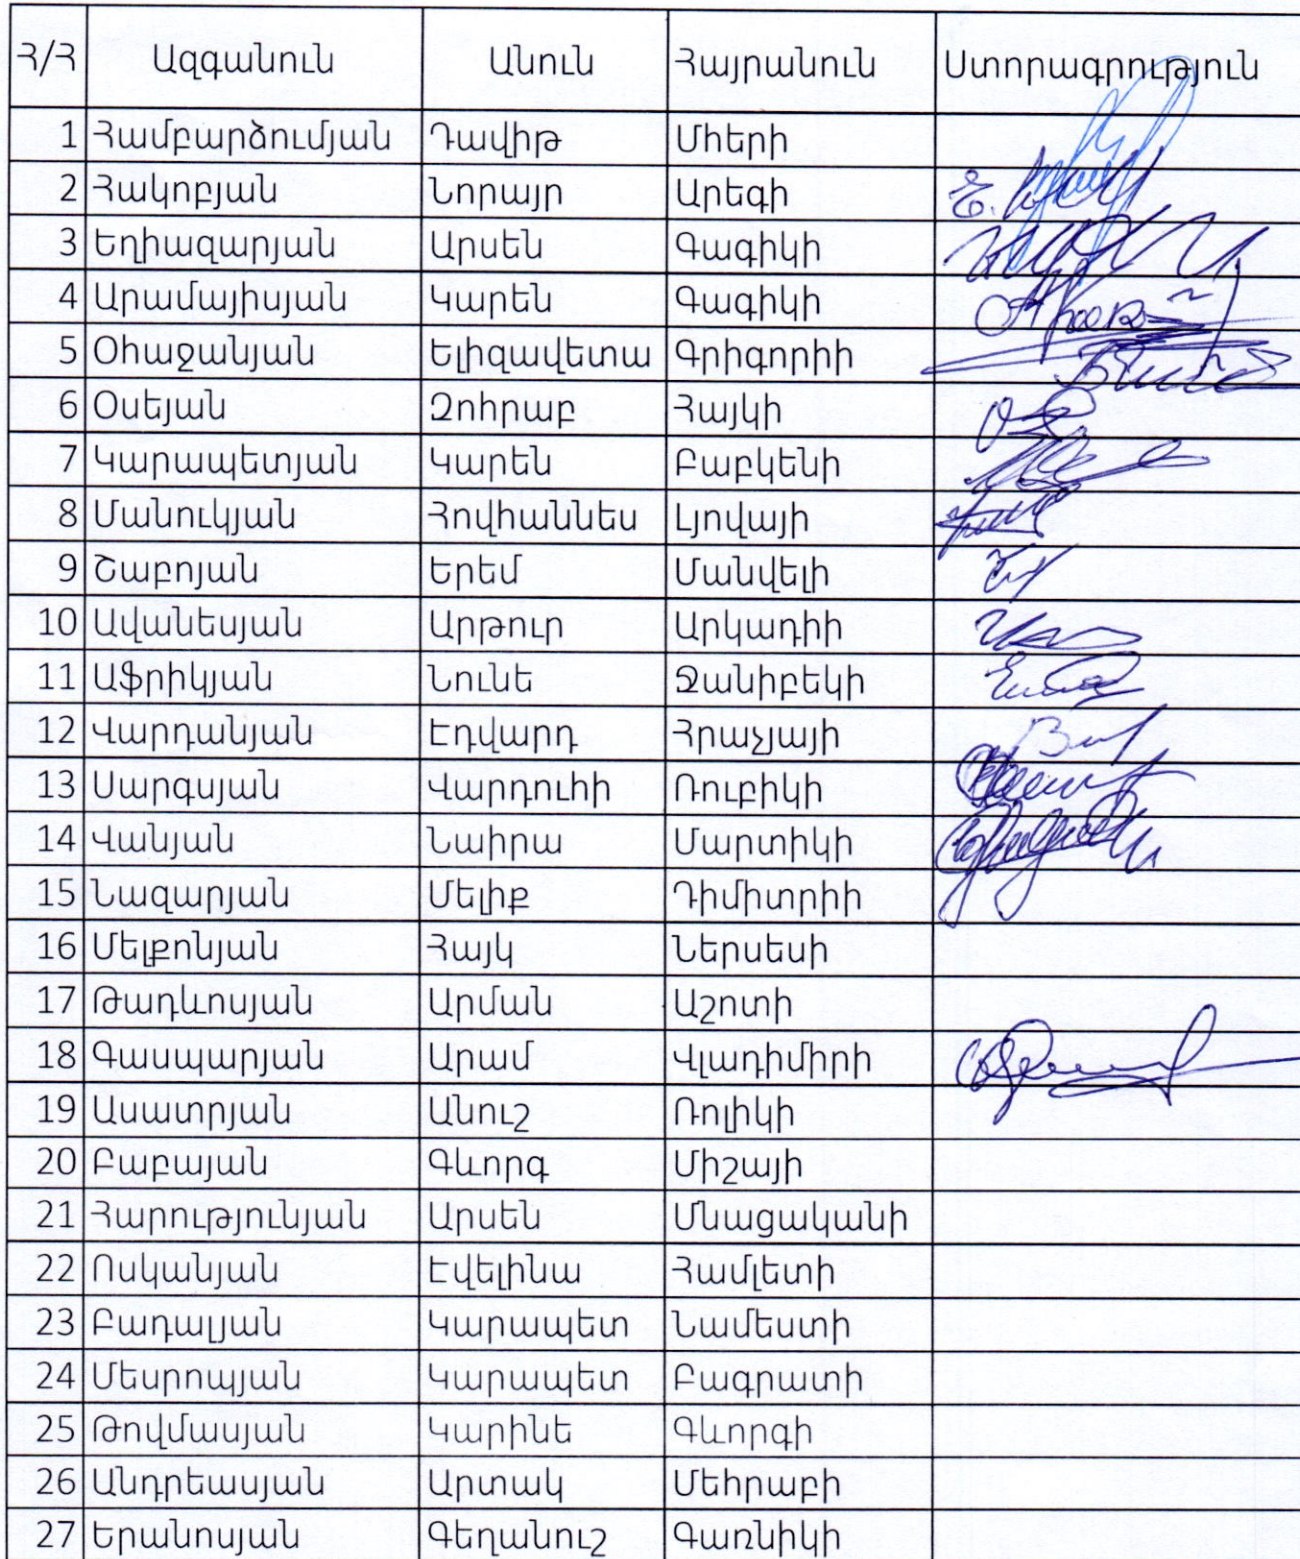 Հ/Հ Ազգանուն Անուն Հայրանուն Ստորագրություն
1 Համբարձումյան Դավիթ Մհերի
2 Հակոբյան Նորայր Արեգի
3 Եղիազարյան Արսեն Գագիկի
4 Արամայիսյան Կարեն Գագիկի
5 Օհաջանյան Ելիզավետա Գրիգորիի
6 Օսեյան Զոհրաբ Հայկի
7 Կարապետյան Կարեն Բաբկենի
8 Մանուկյան Հովհաննես Լյովայի
9 Շաբոյան Երեմ Մանվելի
10 Ավանեսյան Արթուր Արկադիի
11 Աֆրիկյան Նունե Ջանիբեկի
12 Վարդանյան Էդվարդ Հրաչյայի
13 Սարգսյան Վարդուհի Ռուբիկի
14 Վանյան Նաիրա Մարտիկի
15 Նազարյան Մելիք Դիմիտրիի
16 Մելքոնյան Հայկ Ներսեսի
17 Թադևոսյան Արման Աշոտի
18 Գասպարյան Արամ Վլադիմիրի
19 Ասատրյան Անուշ Ռոլիկի
20 Բաբայան Գևորգ Միշայի
21 Հարությունյան Արսեն Մնացականի
22 Ոսկանյան Էվելինա Համլետի
23 Բադալյան Կարապետ Նամեստի
24 Մեսրոպյան Կարապետ Բագրատի
25 Թովմասյան Կարինե Գևորգի
26 Անդրեասյան Արտակ Մեհրաբի
27 Երանոսյան Գեղանուշ Գառնիկի